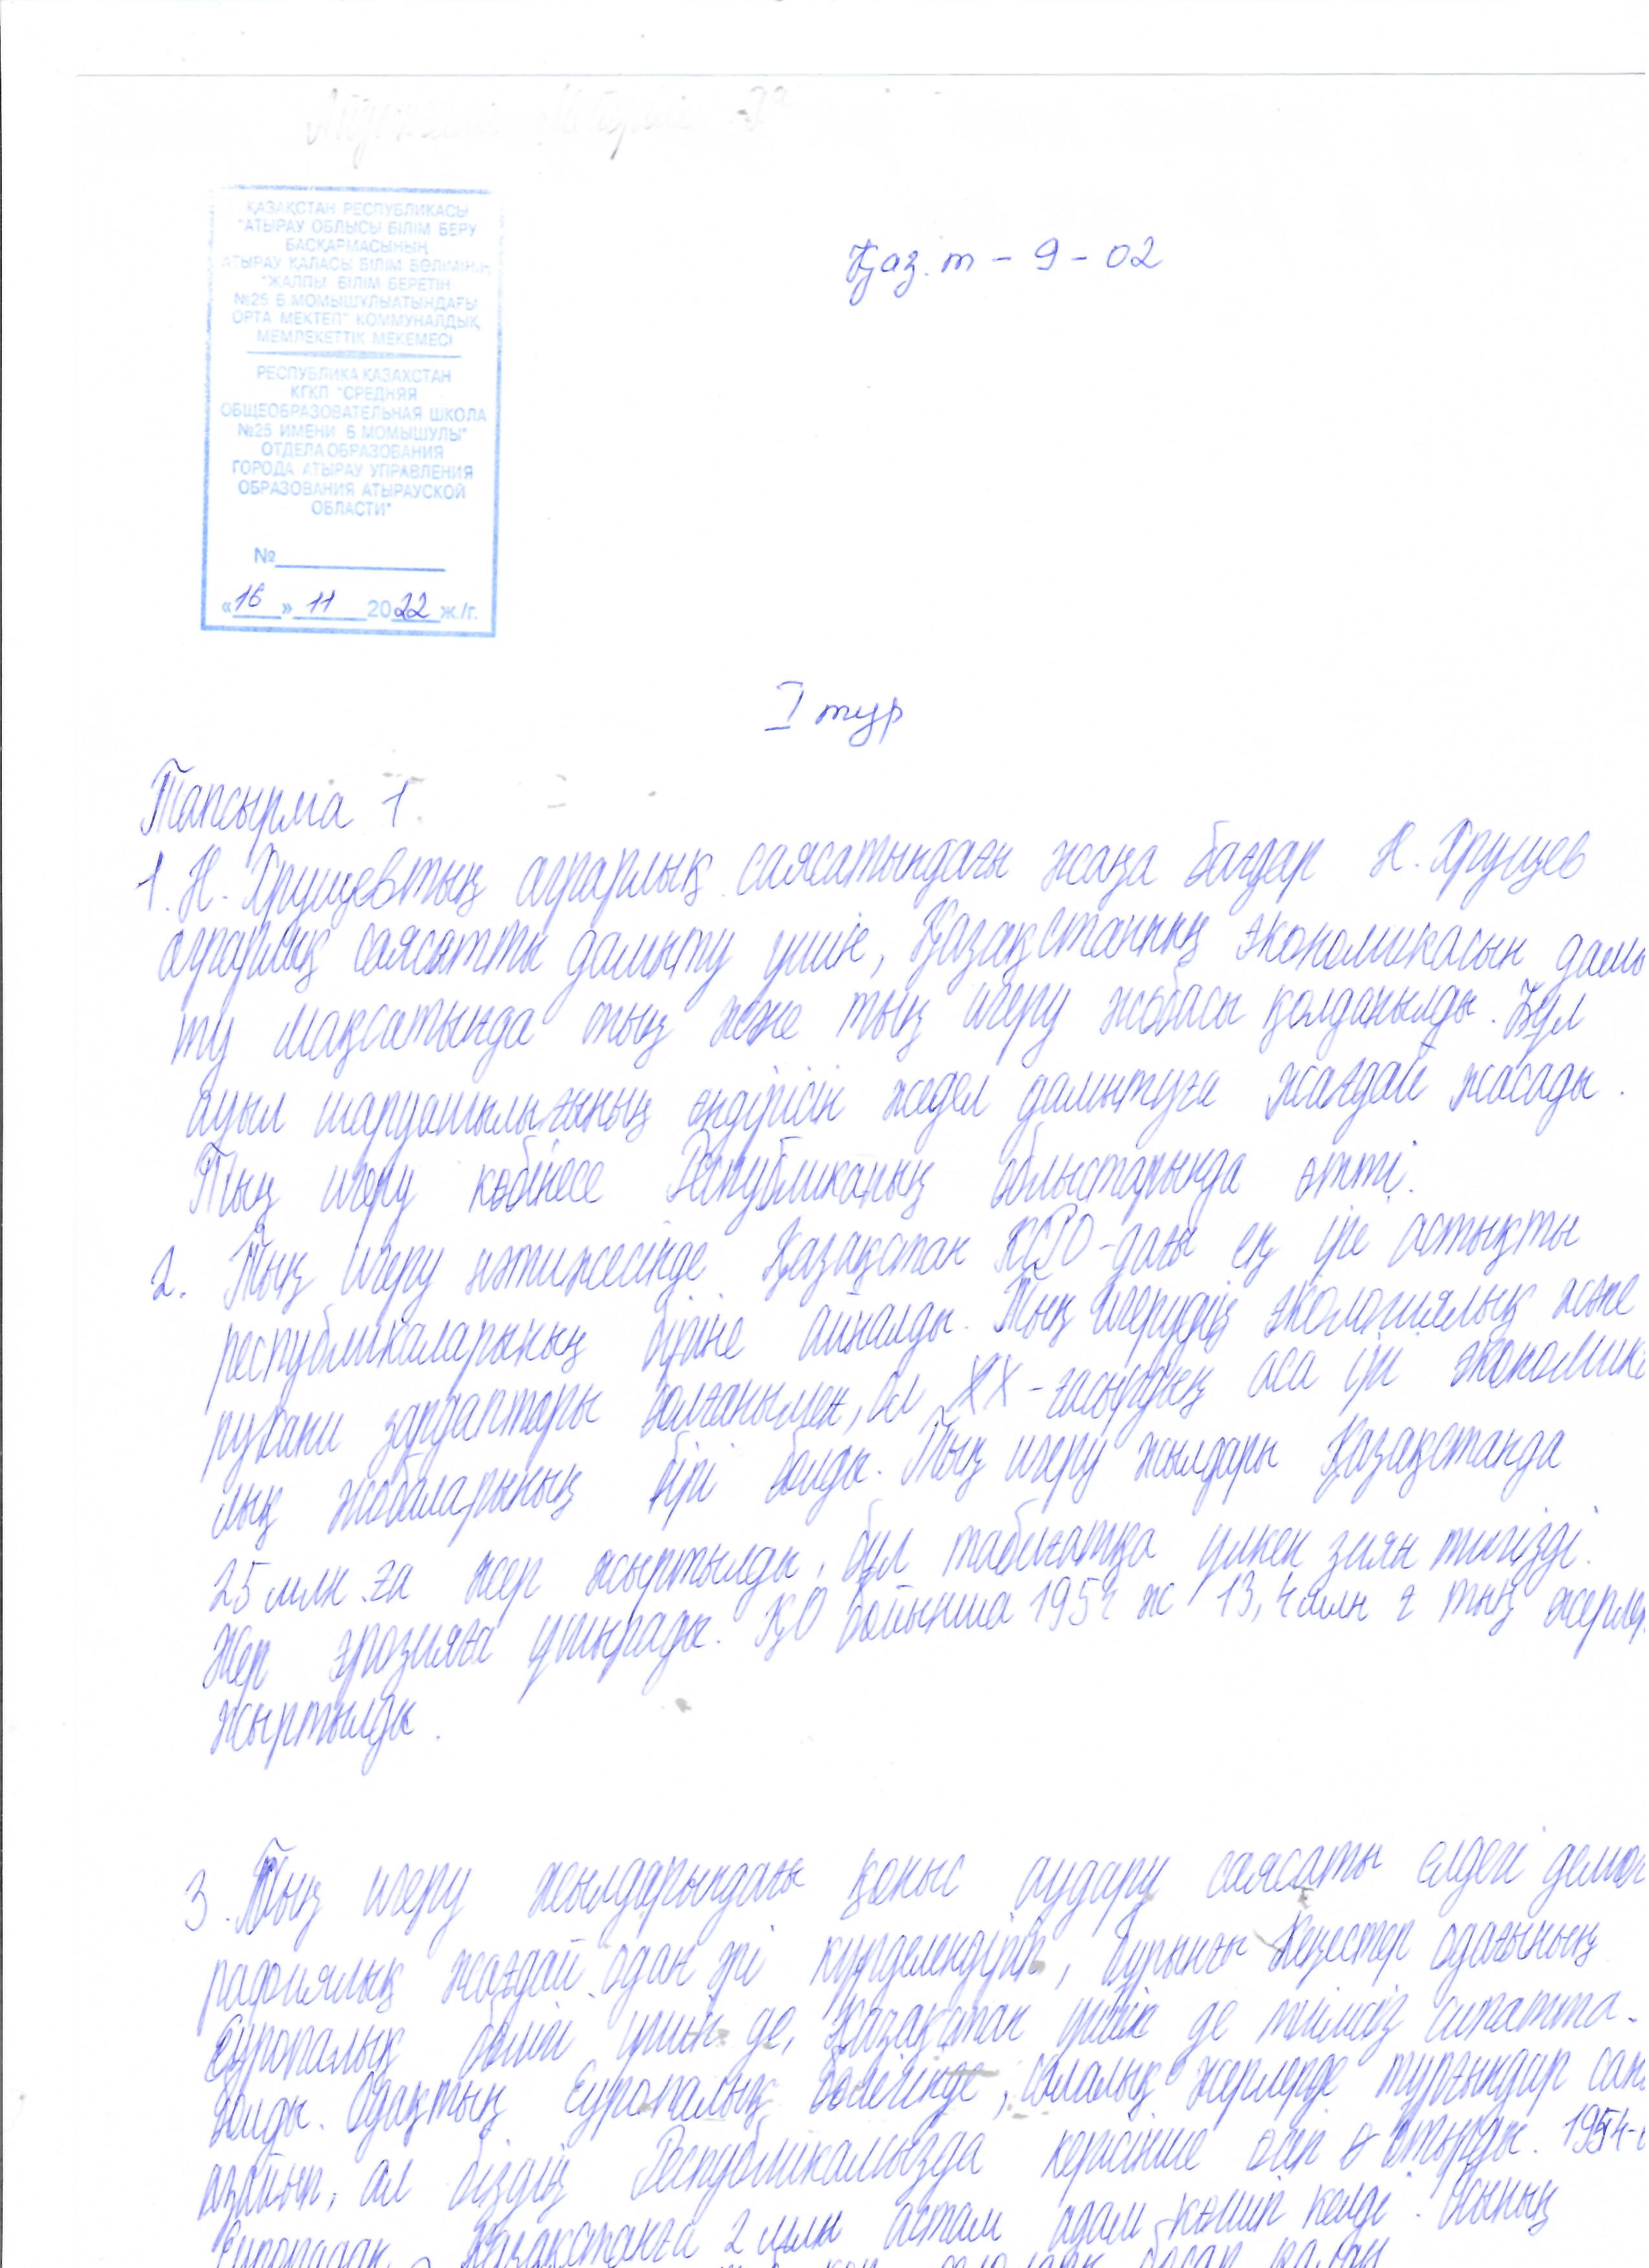 ҚАЗАҚСТАН РЕСПУБЛИКАСЫ
"АТЫРАУ ОБЛЫСЫ БІЛІМ БЕРУ
БАСҚАРМАСЫНЫҢ
АТЫРАУ ҚАЛАСЫ БІЛІМ БӨЛІМІНІҢ
"ЖАЛПЫ БІЛІМ БЕРЕТІН
№25 Б.МОМЫШҰЛЫАТЫНДАҒЫ
ОРТА МЕКТЕП" КОММУНАЛДЫҚ
МЕМЛЕКЕТТІК МЕКЕМЕСІ
РЕСПУБЛИКА КАЗАХСТАН
КГКП "СРЕДНЯЯ
ОБЩЕОБРАЗОВАТЕЛЬНАЯ ШКОЛА
№25 ИМЕНИ Б.МОМЫШУЛЫ"
ОТДЕЛА ОБРАЗОВАНИЯ
ГОРОДА АТЫРАУ УПРАВЛЕНИЯ
ОБРАЗОВАНИЯ АТЫРАУСКОЙ
ОБЛАСТИ"
№
«16» 11 2022 ж./г.
Қаз.т - 9 - 02
I тур
Тапсырма 1.
1. Н. Хрущевтың аграрлық саясатындағы жаңа бағдар Н. Хрущев
аграрлық саясатты дамыту үшін, Қазақстанның экономикасын дамы
ту мақсатында тың және тың игеру жобасы қолданылды. Бұл
ауыл шаруашылығының өндірісін жедел дамытуға жағдай жасады.
Тың игеру көбінесе Республиканың облыстарында өтті.
2. Тың игеру нәтижесінде Қазақстан КСРО-дағы ең ірі астықты
республикаларының біріне айналды. Тың игерудің экологиялық және
рухани зардаптары болғанымен, ол XX-ғасырдың аса ірі экономика
лық жобаларының бірі болды. Тың игеру жылдары Қазақстанда
25 млн.га жер жыртылды, бұл табиғатқа үлкен зиян тигізді.
Жер эрозияға ұшырады. ҚО бойынша 1954 ж 13,4 млн г тың жерлер
жыртылды.
3. Тың игеру жылдарындағы қоныс аудару саясаты елдегі демог
рафиялық жағдай одан әрі күрделендіріп, бұрынғы Кеңестер одағының
Еуропалық бөлігі үшін де, Қазақстан үшін де тиімсіз сипатта
болды. Одақтың Еуропалық бөлігінде, далалық жерлерде тұрғындар саны
азайып, ал біздің Республикамызда керісінше өсіп отырды. 1954-
Еуропадан Қазақстанға 2 млн астам адам көшіп келді. Осының